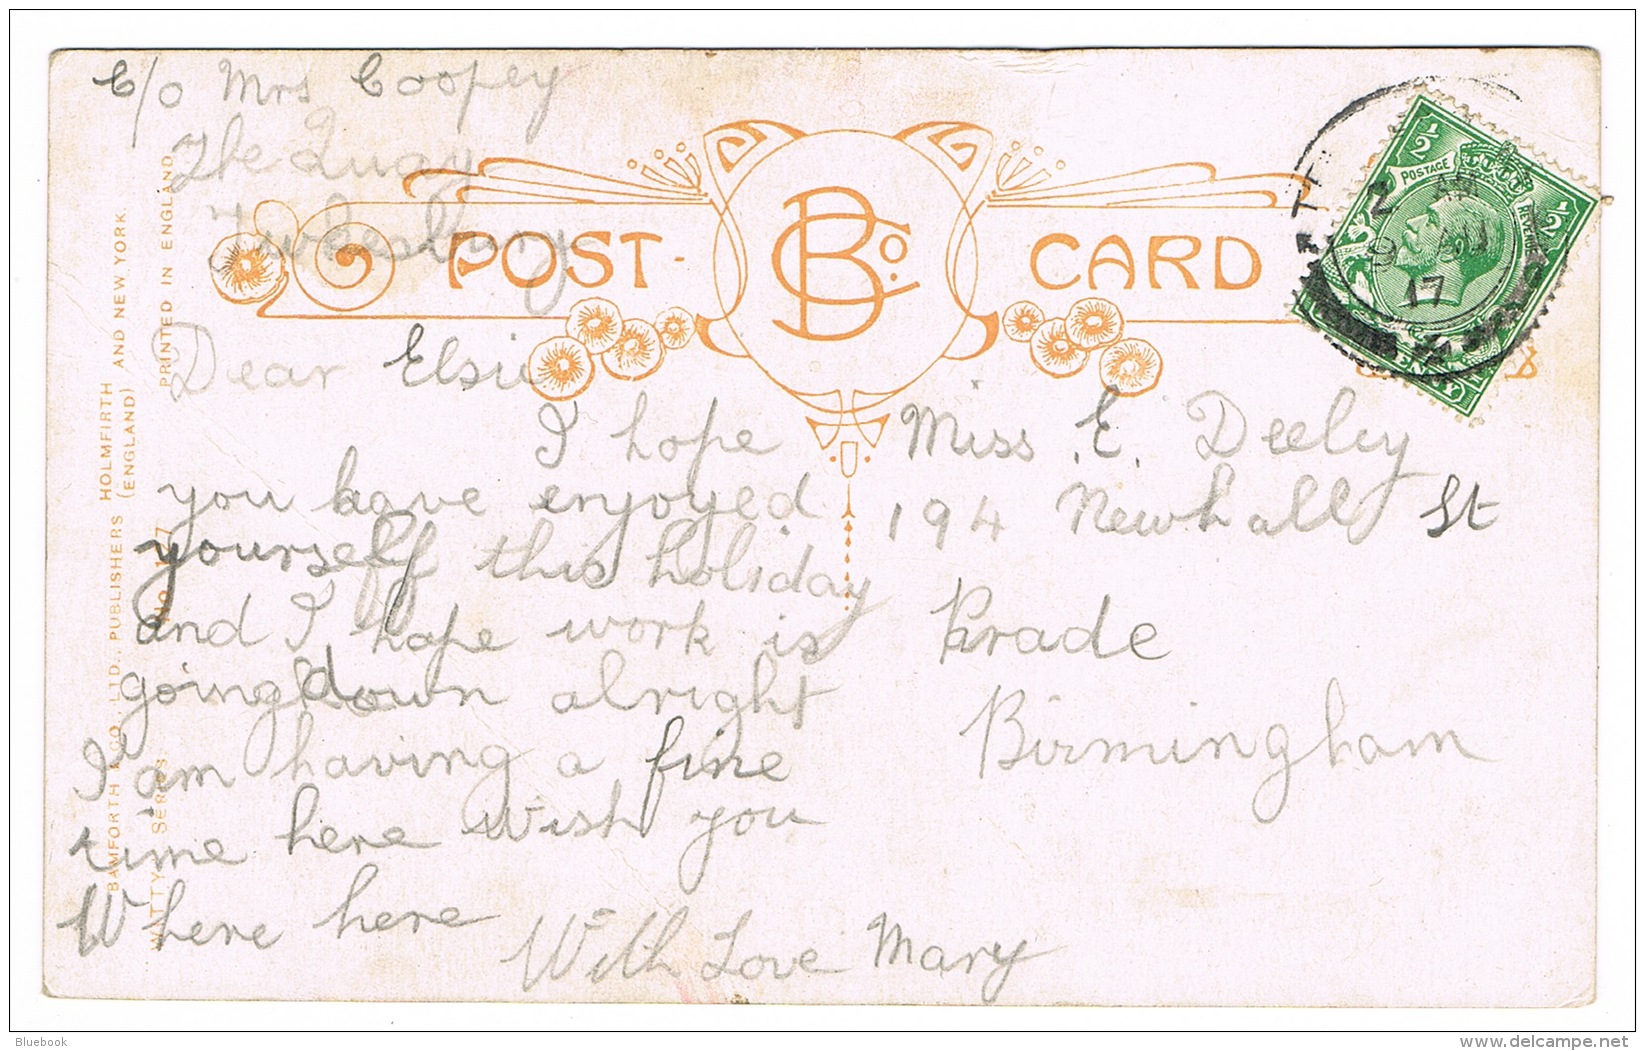 c/o Mrs Coopey
The Quay
Tewkesbury
POST CARD
BCo.
Dear Elsie
I hope
you have enjoyed
yourself this holiday
and I hope work is
going down alright
I am having a fine
time here wish you
Where here
With Love Mary
Miss. E. Deeley
194 Newhall St
Parade
Birmingham
BAMFORTH & CO., LTD., PUBLISHERS HOLMFIRTH (ENGLAND) AND NEW YORK.
WITTY SERIES. PRINTED IN ENGLAND
½ ½
POSTAGE REVENUE
AM
17
Bluebook
delcampe.net